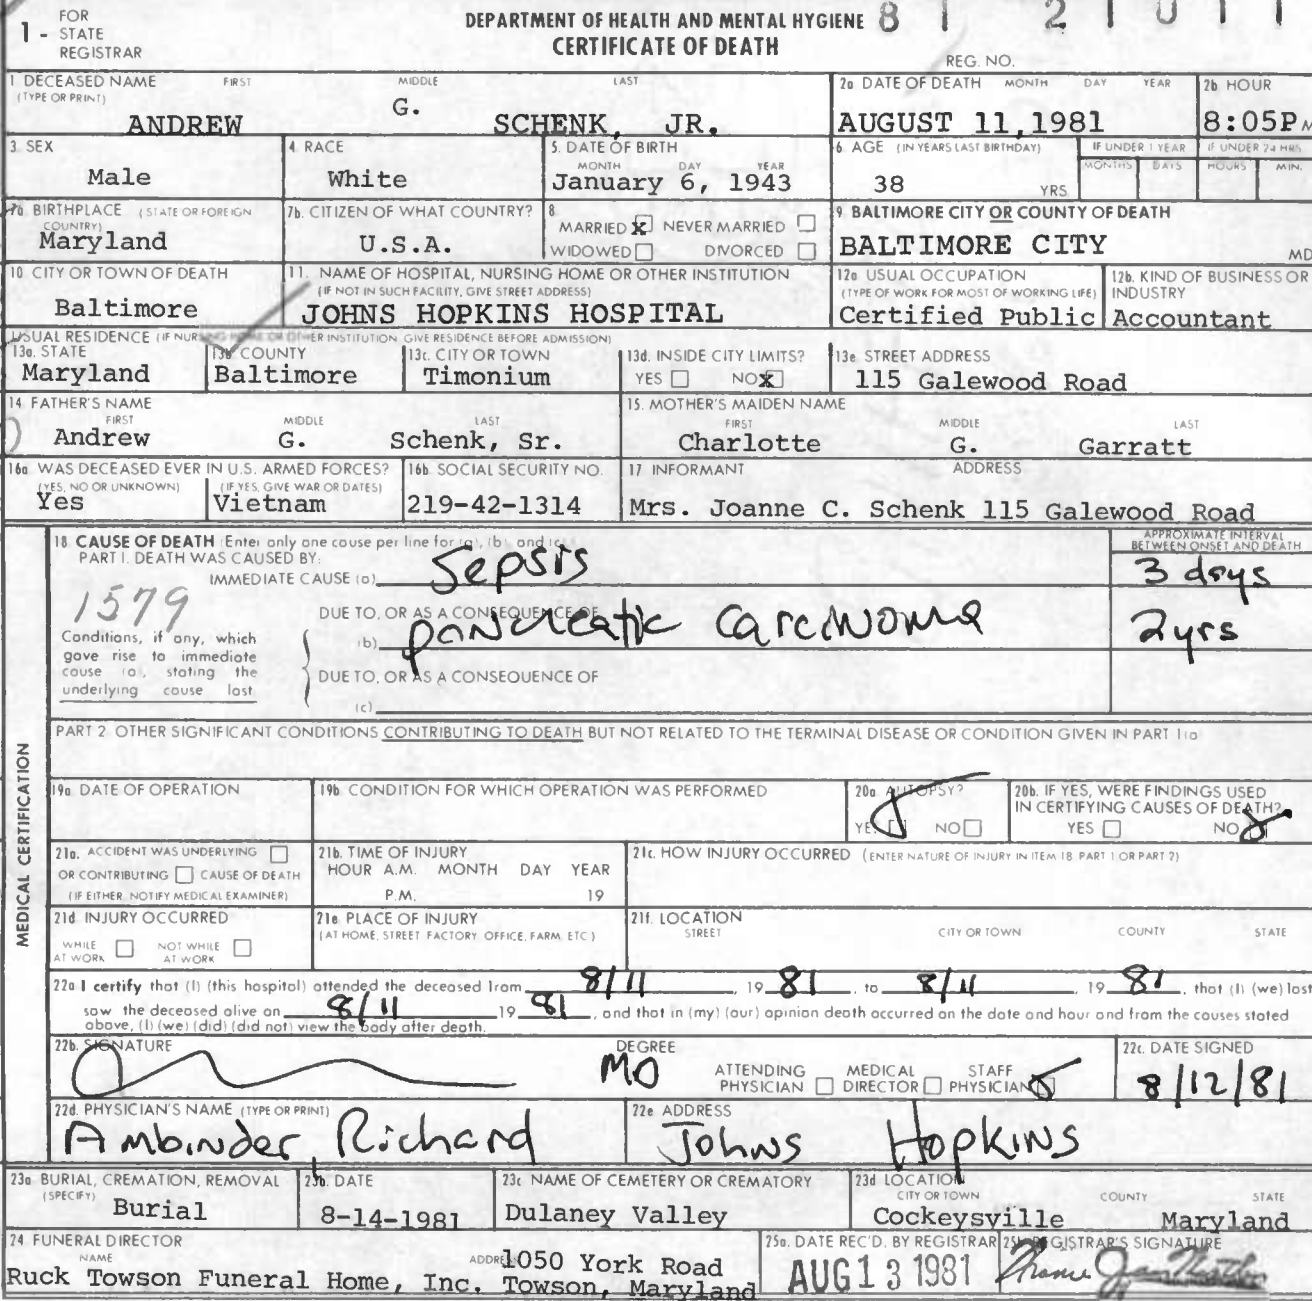 FOR
1 - STATE
REGISTRAR
DEPARTMENT OF HEALTH AND MENTAL HYGIENE
CERTIFICATE OF DEATH
8 1 2 1 0 1 1
REG. NO.
1 DECEASED NAME FIRST MIDDLE LAST
(TYPE OR PRINT)
ANDREW G. SCHENK, JR.
2a DATE OF DEATH MONTH DAY YEAR
AUGUST 11,1981
2b HOUR
8:05P M
3 SEX
Male
4 RACE
White
5. DATE OF BIRTH
MONTH DAY YEAR
January 6, 1943
6 AGE (IN YEARS LAST BIRTHDAY)
38 YRS
IF UNDER 1 YEAR
MONTHS DAYS
IF UNDER 24 HRS.
HOURS MIN.
7a BIRTHPLACE (STATE OR FOREIGN
COUNTRY)
Maryland
7b. CITIZEN OF WHAT COUNTRY?
U.S.A.
8
MARRIED X NEVER MARRIED
WIDOWED DIVORCED
9 BALTIMORE CITY OR COUNTY OF DEATH
BALTIMORE CITY MD
10 CITY OR TOWN OF DEATH
Baltimore
11. NAME OF HOSPITAL, NURSING HOME OR OTHER INSTITUTION
(IF NOT IN SUCH FACILITY, GIVE STREET ADDRESS)
JOHNS HOPKINS HOSPITAL
12a USUAL OCCUPATION
(TYPE OF WORK FOR MOST OF WORKING LIFE)
Certified Public
12b. KIND OF BUSINESS OR
INDUSTRY
Accountant
USUAL RESIDENCE (IF NURSING HOME OR OTHER INSTITUTION GIVE RESIDENCE BEFORE ADMISSION)
13a. STATE
Maryland
13b COUNTY
Baltimore
13c. CITY OR TOWN
Timonium
13d. INSIDE CITY LIMITS?
YES NO X
13e STREET ADDRESS
115 Galewood Road
14 FATHER'S NAME
FIRST MIDDLE LAST
Andrew G. Schenk, Sr.
15. MOTHER'S MAIDEN NAME
FIRST MIDDLE LAST
Charlotte G. Garratt
16a WAS DECEASED EVER IN U.S. ARMED FORCES?
(YES, NO OR UNKNOWN) (IF YES, GIVE WAR OR DATES)
Yes Vietnam
16b SOCIAL SECURITY NO.
219-42-1314
17 INFORMANT ADDRESS
Mrs. Joanne C. Schenk 115 Galewood Road
MEDICAL CERTIFICATION
18 CAUSE OF DEATH (Enter only one cause per line for (a), (b), and (c).)
PART I. DEATH WAS CAUSED BY:
IMMEDIATE CAUSE (a) Sepsis
APPROXIMATE INTERVAL
BETWEEN ONSET AND DEATH
3 days
1579
Conditions, if any, which
gave rise to immediate
cause (a), stating the
underlying cause last
DUE TO, OR AS A CONSEQUENCE OF
(b) pancreatic carcinoma
2 yrs
DUE TO, OR AS A CONSEQUENCE OF
(c)
PART 2 OTHER SIGNIFICANT CONDITIONS CONTRIBUTING TO DEATH BUT NOT RELATED TO THE TERMINAL DISEASE OR CONDITION GIVEN IN PART 1(a)
19a DATE OF OPERATION
19b CONDITION FOR WHICH OPERATION WAS PERFORMED
20a AUTOPSY?
YES NO
20b. IF YES, WERE FINDINGS USED
IN CERTIFYING CAUSES OF DEATH?
YES NO
21a. ACCIDENT WAS UNDERLYING
OR CONTRIBUTING CAUSE OF DEATH
(IF EITHER NOTIFY MEDICAL EXAMINER)
21b. TIME OF INJURY
HOUR A.M. MONTH DAY YEAR
P.M. 19
21c. HOW INJURY OCCURRED (ENTER NATURE OF INJURY IN ITEM 18 PART 1 OR PART 2)
21d INJURY OCCURRED
WHILE NOT WHILE
AT WORK AT WORK
21e PLACE OF INJURY
(AT HOME, STREET FACTORY OFFICE, FARM, ETC)
21f. LOCATION
STREET CITY OR TOWN COUNTY STATE
22a I certify that (I) (this hospital) attended the deceased from 8/11, 19 81, to 8/11, 19 81, that (I) (we) last
saw the deceased alive on 8/11 19 81, and that in (my) (our) opinion death occurred on the date and hour and from the causes stated
above, (I) (we) (did) (did not) view the body after death.
22b. SIGNATURE DEGREE
MD
ATTENDING MEDICAL STAFF
PHYSICIAN DIRECTOR PHYSICIAN
22c. DATE SIGNED
8/12/81
22d. PHYSICIAN'S NAME (TYPE OR PRINT)
Ambinder, Richard
22e ADDRESS
Johns Hopkins
23a BURIAL, CREMATION, REMOVAL
(SPECIFY)
Burial
23b. DATE
8-14-1981
23c NAME OF CEMETERY OR CREMATORY
Dulaney Valley
23d LOCATION
CITY OR TOWN COUNTY STATE
Cockeysville Maryland
24 FUNERAL DIRECTOR
NAME ADDRESS
Ruck Towson Funeral Home, Inc. 1050 York Road
Towson, Maryland
25a. DATE REC'D. BY REGISTRAR
AUG 13 1981
25b REGISTRAR'S SIGNATURE